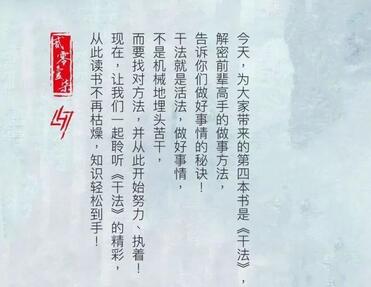 今天，为大家带来的第四本书是《干法》，
解密前辈高手的做事方法，
告诉你们做好事情的秘诀！
干法就是活法，做好事情，
不是机械地埋头苦干，
而要找对方法，并从此开始努力、执着！
现在，让我们一起聆听《干法》的精彩，
从此读书不再枯燥，知识轻松到手！
贰零壹柒